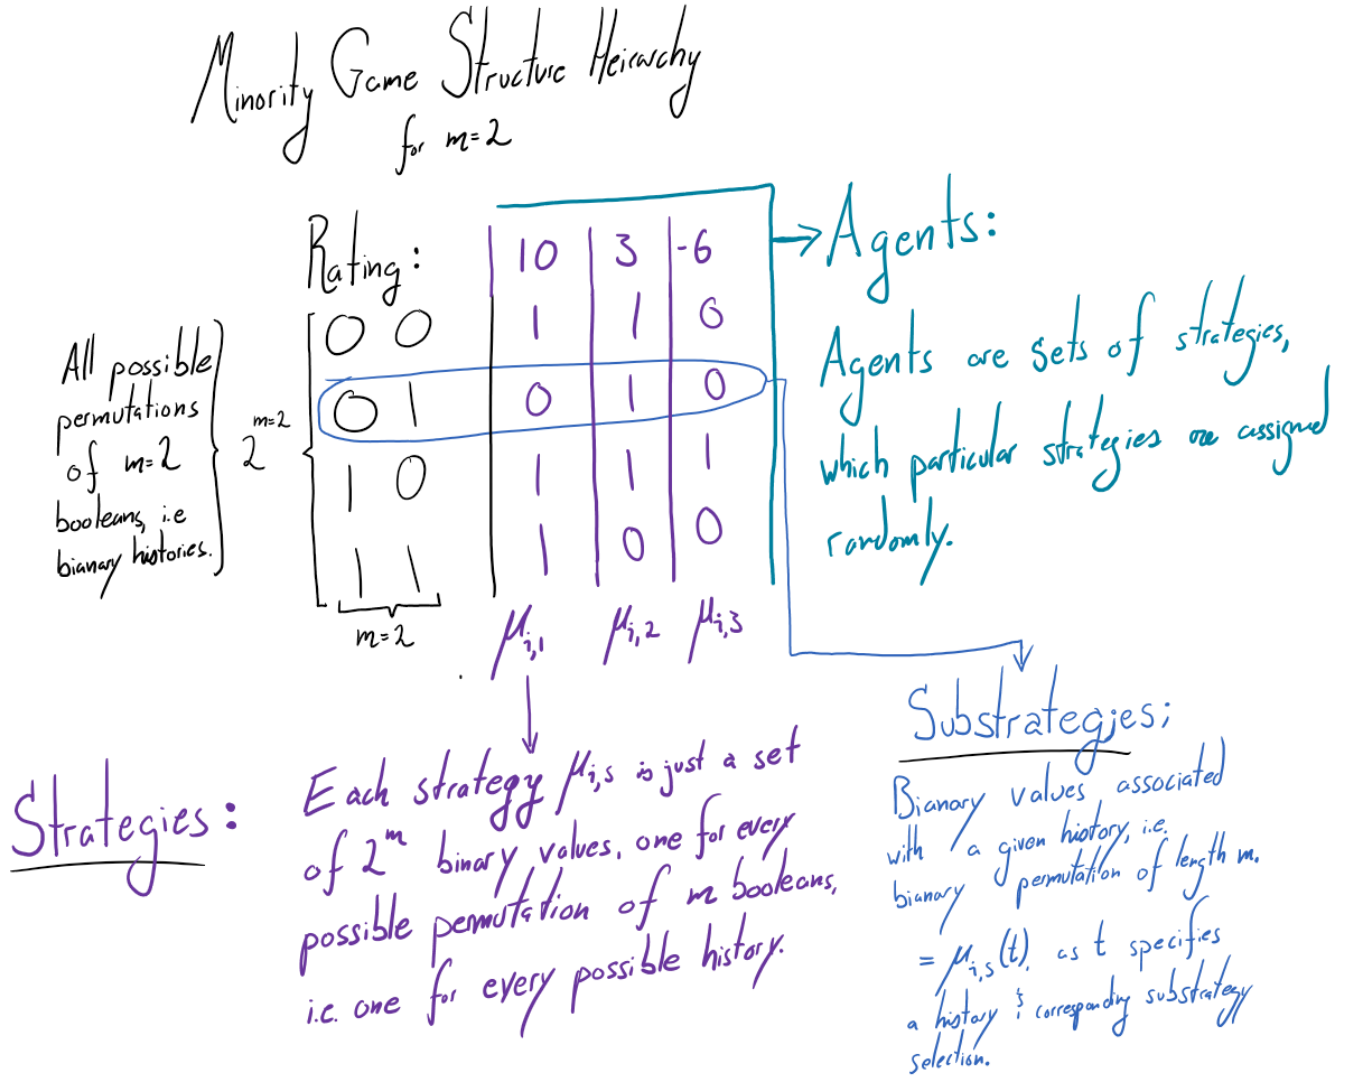 Minority Game Structure Heirarchy
for m=2
Rating: 10 3 -6
0 0 1 1 0
0 1 0 1 0
1 0 1 1 1
1 1 1 0 0
m=2
μi,1 μi,2 μi,3
All possible
permutations
of m=2
booleans, i.e
bianary histories.
2^m=2
→ Agents:
Agents are sets of strategies,
which particular strategies are assigned
randomly.
Strategies:
Each strategy μi,s is just a set
of 2^m binary values, one for every
possible permutation of m booleans,
i.e. one for every possible history.
Substrategies:
Bianary values associated
with a given history, i.e.
bianary permutation of length m.
= μi,s(t), as t specifies
a history & corresponding substrategy
selection.